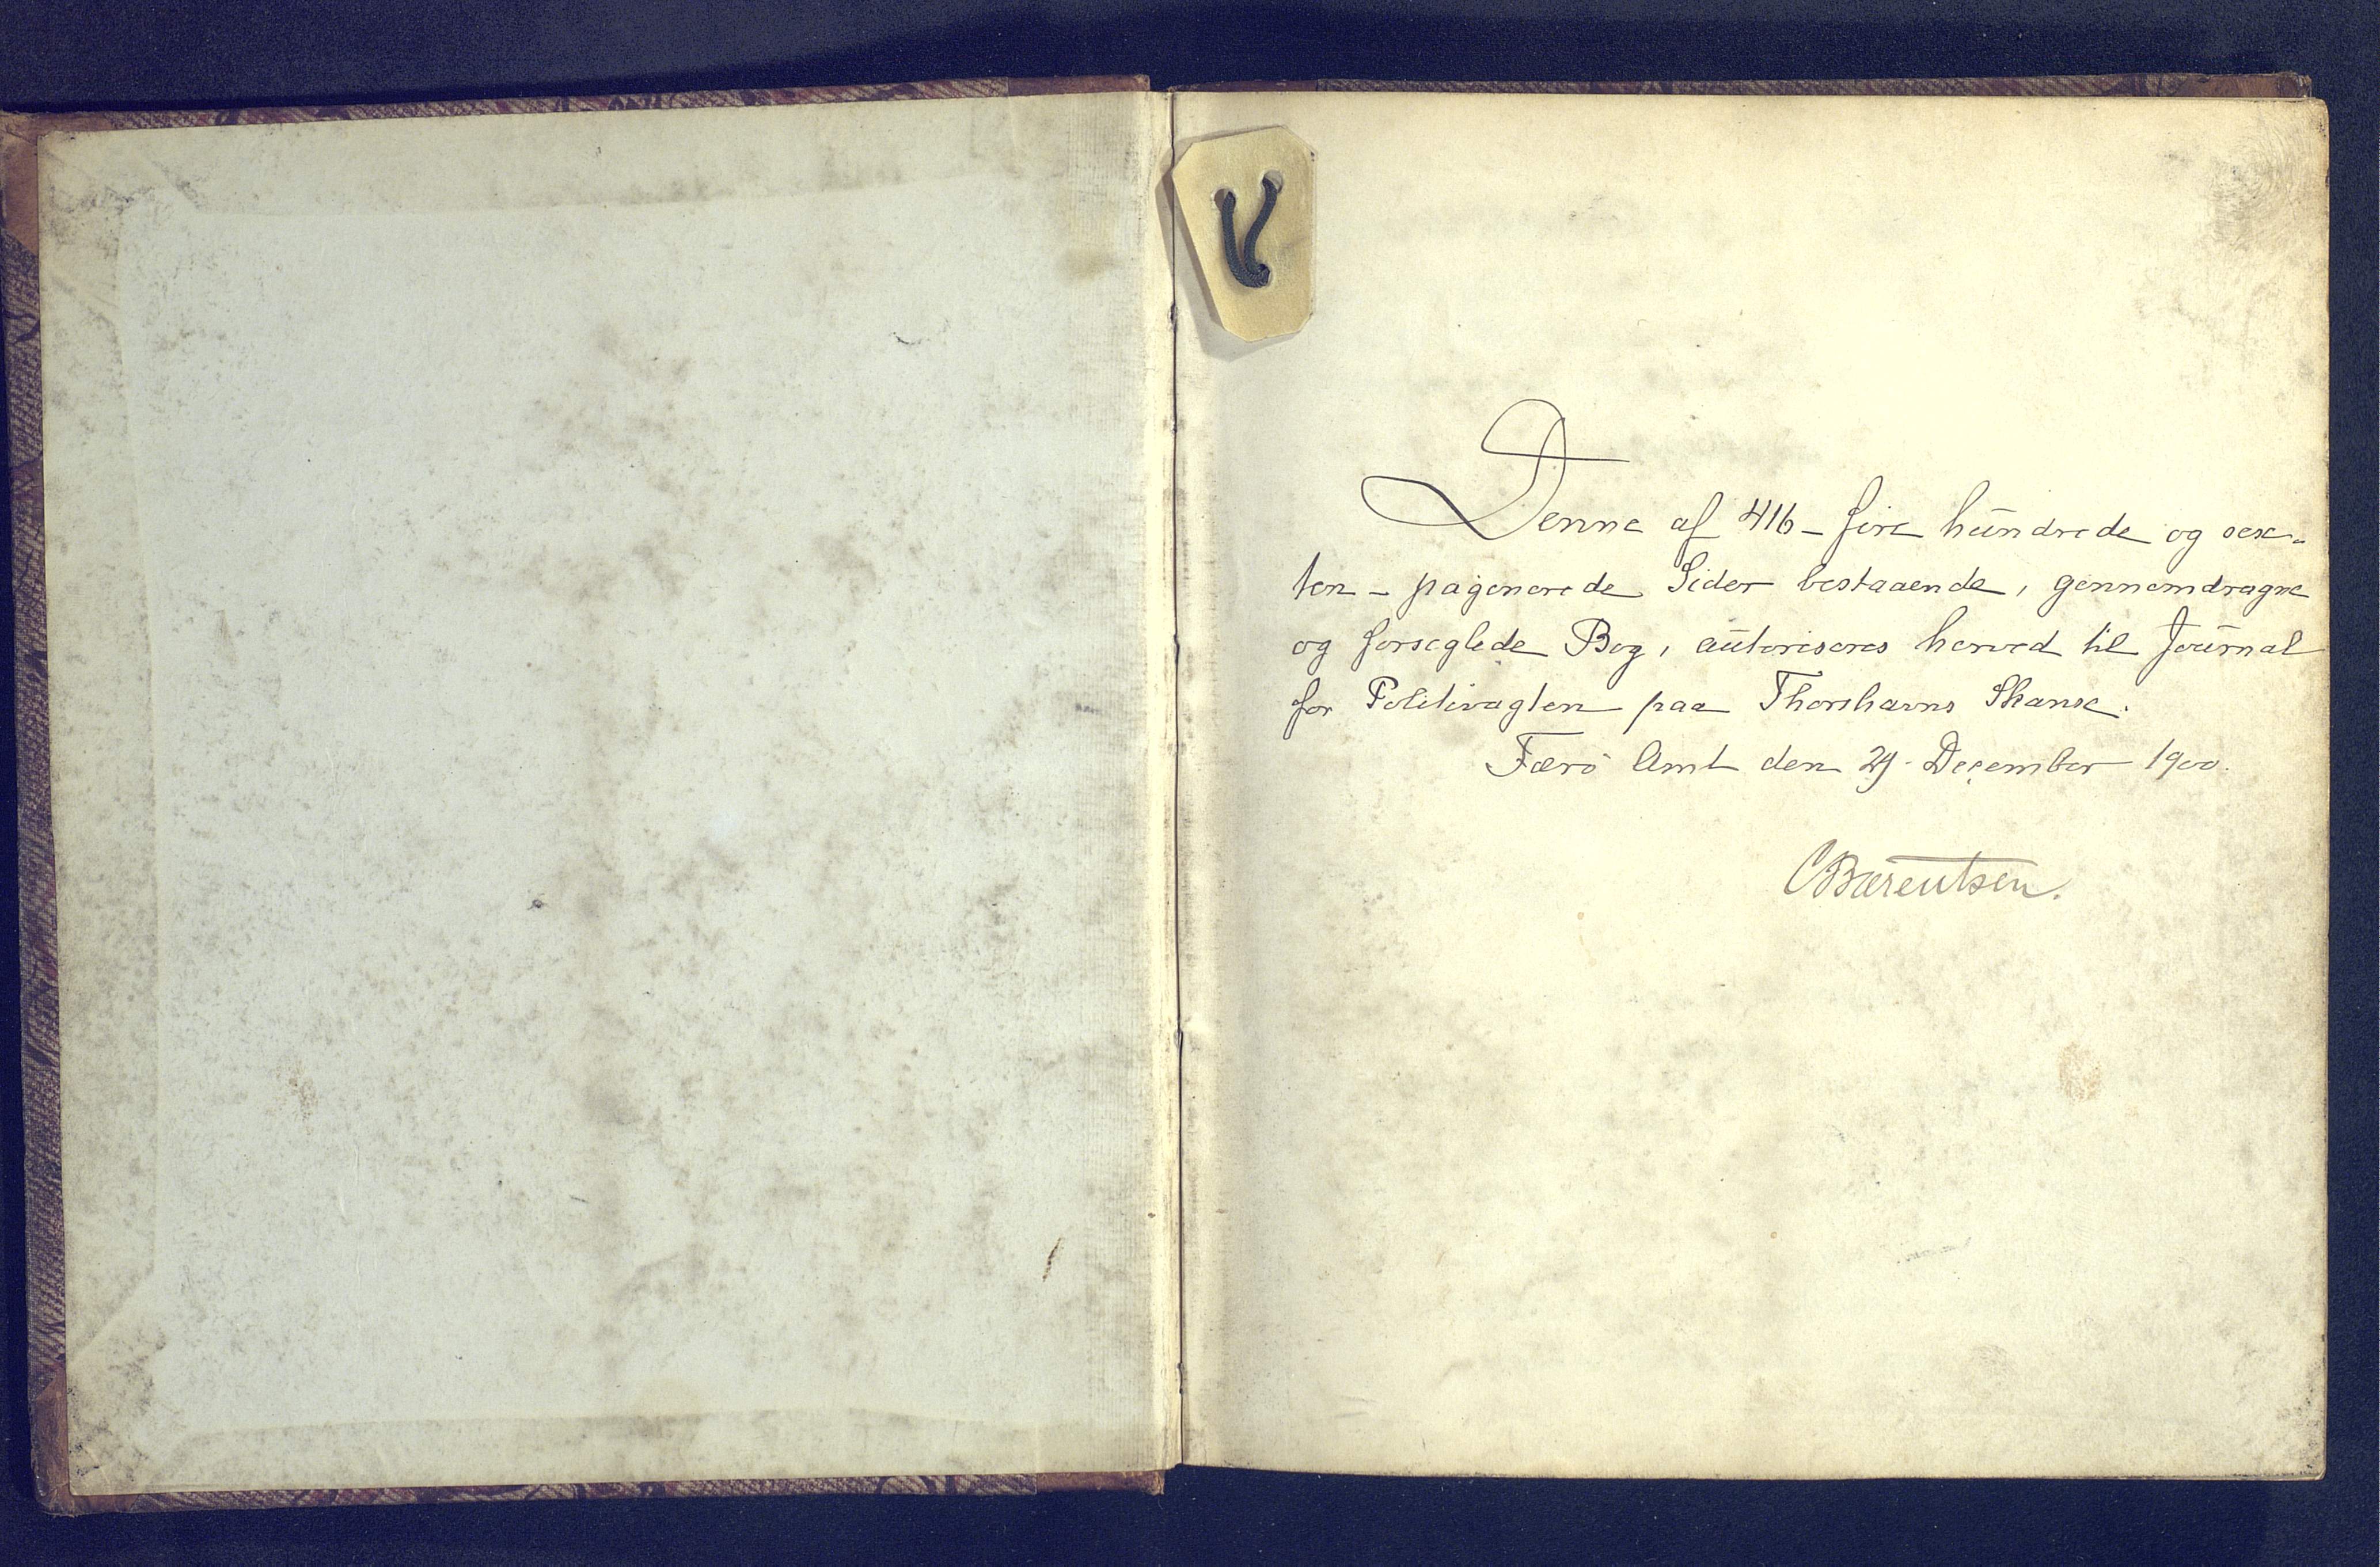 Denne af 416 - fire hundrede og sex-
ten - paginerede Sider bestaaende, gennemdragne
og forseglede Bog, autoriseres herved til Journal
for Politivagten paa Thorshavns Skanse.
Færö Amt den 29. December 1900.
CBærentsen.